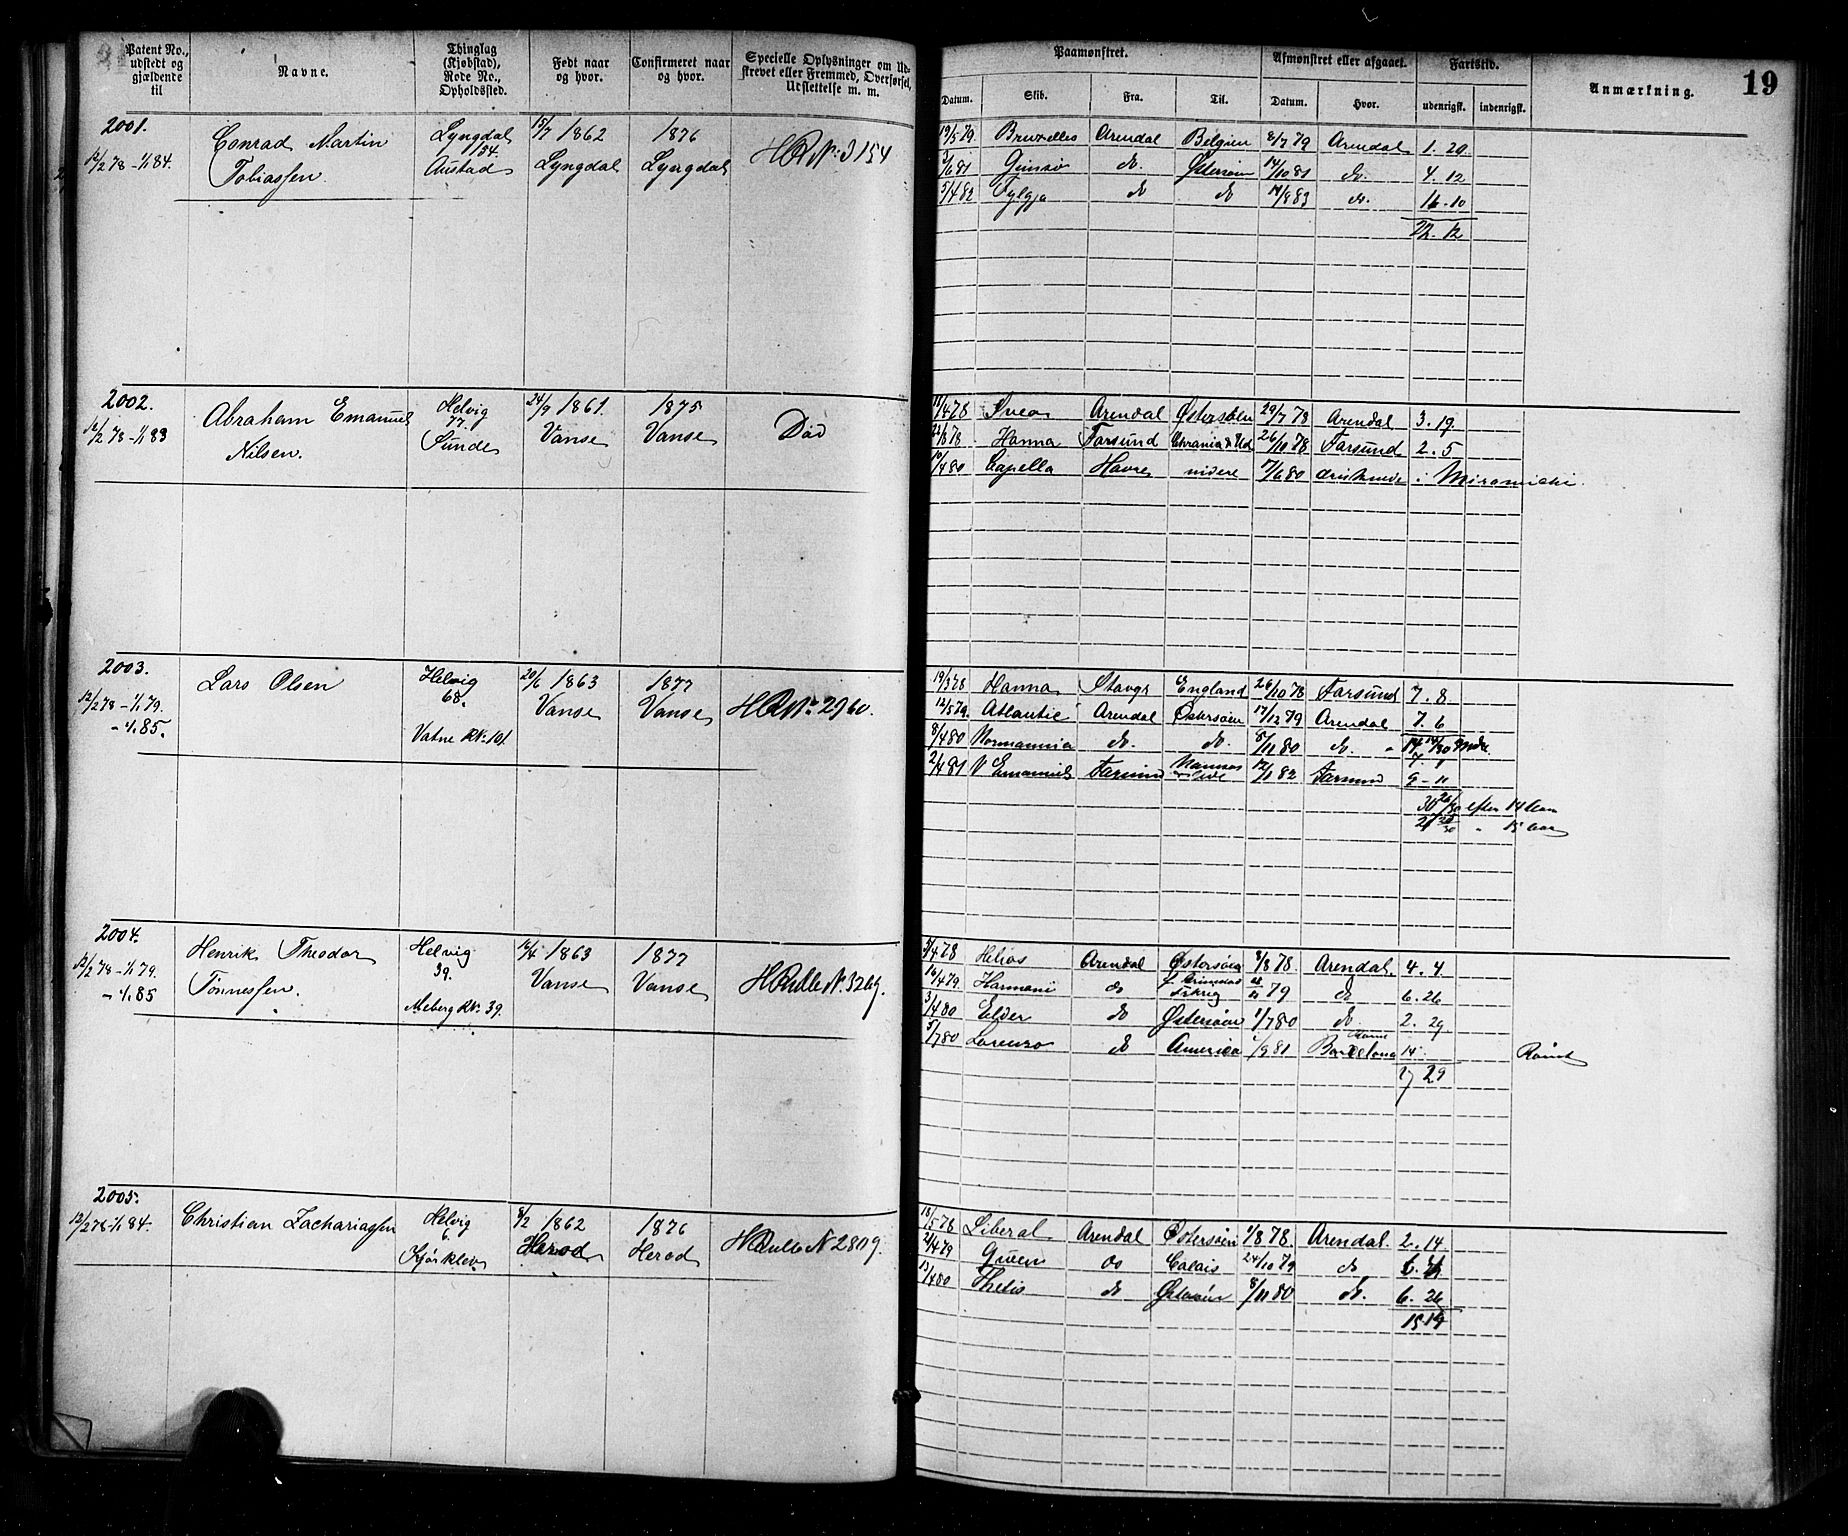 Patent No., udstedt og gjældende til
Navne.
Thinglag (Kjøbstad), Rode No., Opholdssted.
Født naar og hvor.
Confirmeret naar og hvor.
Specielle Oplysninger om Udstrevet eller Fremmed, Overførsel, Udslettelse m. m.
Paamønstret.
Afmønstret eller afgaaet.
Fartstid.
Anmærkning.
19
Datum. Skib. Fra. Til. Datum. Hvor. udenrigsk. indenrigsk.
2001.
12/2 78 - 1/1 84.
Conrad Martin
Tobiassen.
Lyngdal
1/54.
Austad
15/7 1862
Lyngdal
1876
Lyngdal
HR N: 3154
19/5 79. Bruxelles Arendal Belgien 8/7 79 Arendal 1. 20
/6 81 do. Østersøen 14/10 81 do. 4. 12
5/4 82 Fylgja do do 14/8 83 do. 16. 10
22. 12
2002.
12/2 78 - 1/1 83
Abraham Emanuel
Nilsen.
Helvig
77.
Sunde
24/9 1861.
Vanse
1875
Vanse
Død
11/4 78 Svea Arendal Østersøen 29/7 78 Arendal 3. 19.
22/8 78. Hanna Farsund Chrania & Ud 26/10 78 Farsund 2. 5
10/4 80 Capella Havre videre 17/6 80 i Miramichi.
2003.
12/2 78 - 1/1 79.
- 1/1 85.
Lars Olsen
Helvig
68.
Vatne RN: 101
20/6 1863
Vanse
1877
Vanse
HR N: 2960.
19/3 78 Hanna Stavgr England 26/10 78 Farsund 7. 8
12/5 79. Atlantic Arendal Østersøen 17/12 79 Arendal 7. 6
8/4 80 Normannia do. do. 8/11 80 do.
2/4 81 V Emanuel Farsund 12/11 82 Farsund 9 - 11
efter 14 Aar
" 15 Aar
2004.
12/2 78 - 1/1 79.
- 1/1 85
Henrik Theodor
Tønnessen.
Helvig
39.
Meberg RN: 39.
16/4 1863
Vanse
1877
Vanse
HRulle N: 3269.
5/4 78 Helios Arendal Østersøen 8/8 78. Arendal. 4. 4.
16/4 79. Harmoni do 79 do 6. 26
3/4 80 Elder do Østersøen 1/7 80 do. 2. 29.
5/7 80 Lorenzo do America /9 81 Barcelona 14 Rømt
29
2005.
12/2 78 - 1/1 84.
Christian Zachariassen
Helvig
6.
Kjørkleiv
8/2 1862
Herod
1876
Herod
HRulle N 2809.
18/5 78 Liberal Arendal Østersøen 1/8 78. Arendal. 2. 14
2/4 79 Queen do Calais 24/10 79 do
13/4 80 Thetis do Østersøen 8/11 80 do. 6. 26
15 19